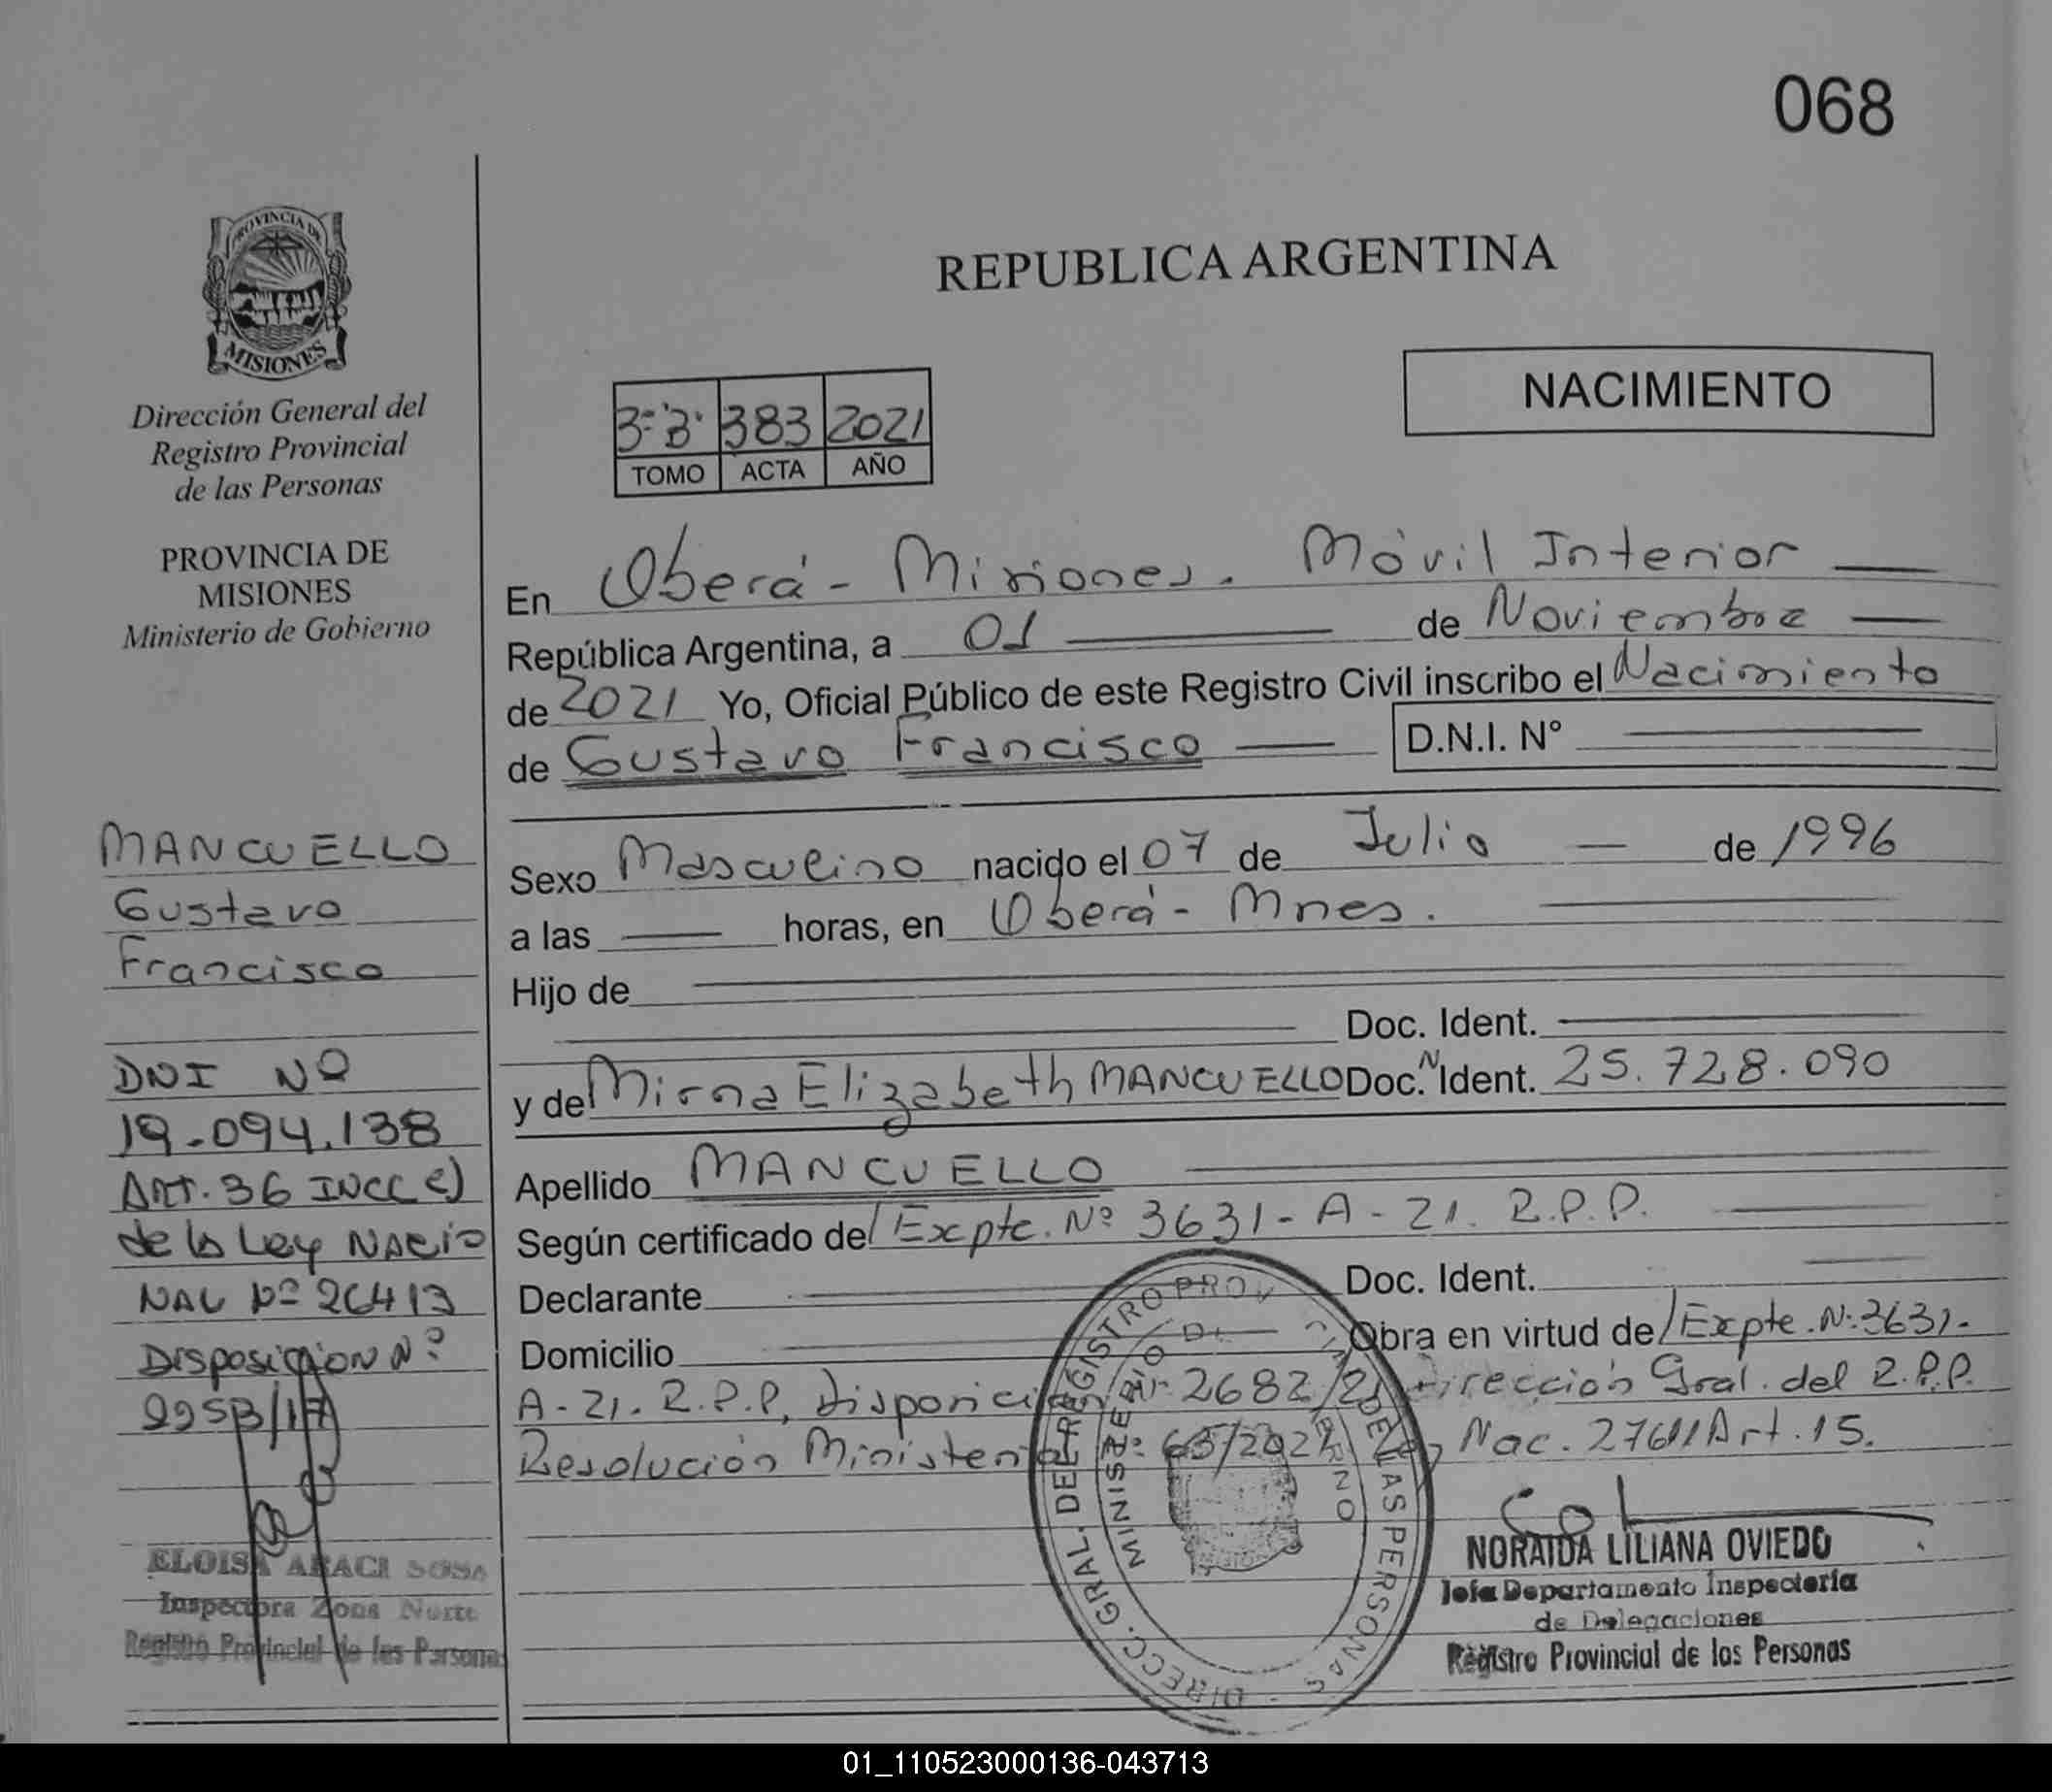 068
PROVINCIA DE
MISIONES
Dirección General del
Registro Provincial
de las Personas
PROVINCIA DE
MISIONES
Ministerio de Gobierno
MANCUELLO
Gustavo
Francisco
DNI Nº
19.094.138
ART. 36 INCC C)
de la Ley NACIO
NAL Nº 26413
DISPOSICION Nº
ELOISA ARACI SOSA
Inspectora Zona Norte
Registro Provincial de las Personas
REPUBLICA ARGENTINA
NACIMIENTO
3-"B" 383 2021
TOMO ACTA AÑO
En Oberá - Misiones. Móvil Interior
República Argentina, a 01 de Noviembre
de 2021 Yo, Oficial Público de este Registro Civil inscribo el Nacimiento
de Gustavo Francisco D.N.I. Nº
Sexo Masculino nacido el 07 de Julio de 1996
a las horas, en Oberá - Mnes.
Hijo de
Doc. Ident.
y de Mirna Elizabeth MANCUELLO Doc. N Ident. 25.728.090
Apellido MANCUELLO
Según certificado de/ Expte. Nº 3631 - A - 21. R.P.P.
Declarante Doc. Ident.
Domicilio Obra en virtud de/ Expte. Nº 3631-
A - 21. R.P.P, Disposición Nº 2682/21 Dirección Gral. del R.P.P.
Resolución Ministerial Nº 63/2021 Ley Nac. 27611 Art. 15.
DIRECC. GRAL. DEL REGISTRO PROVINCIAL DE LAS PERSONAS
MINISTERIO DE GOBIERNO
NORAIDA LILIANA OVIEDO
Jefa Departamento Inspectoría
de Delegaciones
Registro Provincial de las Personas
01_110523000136-043713